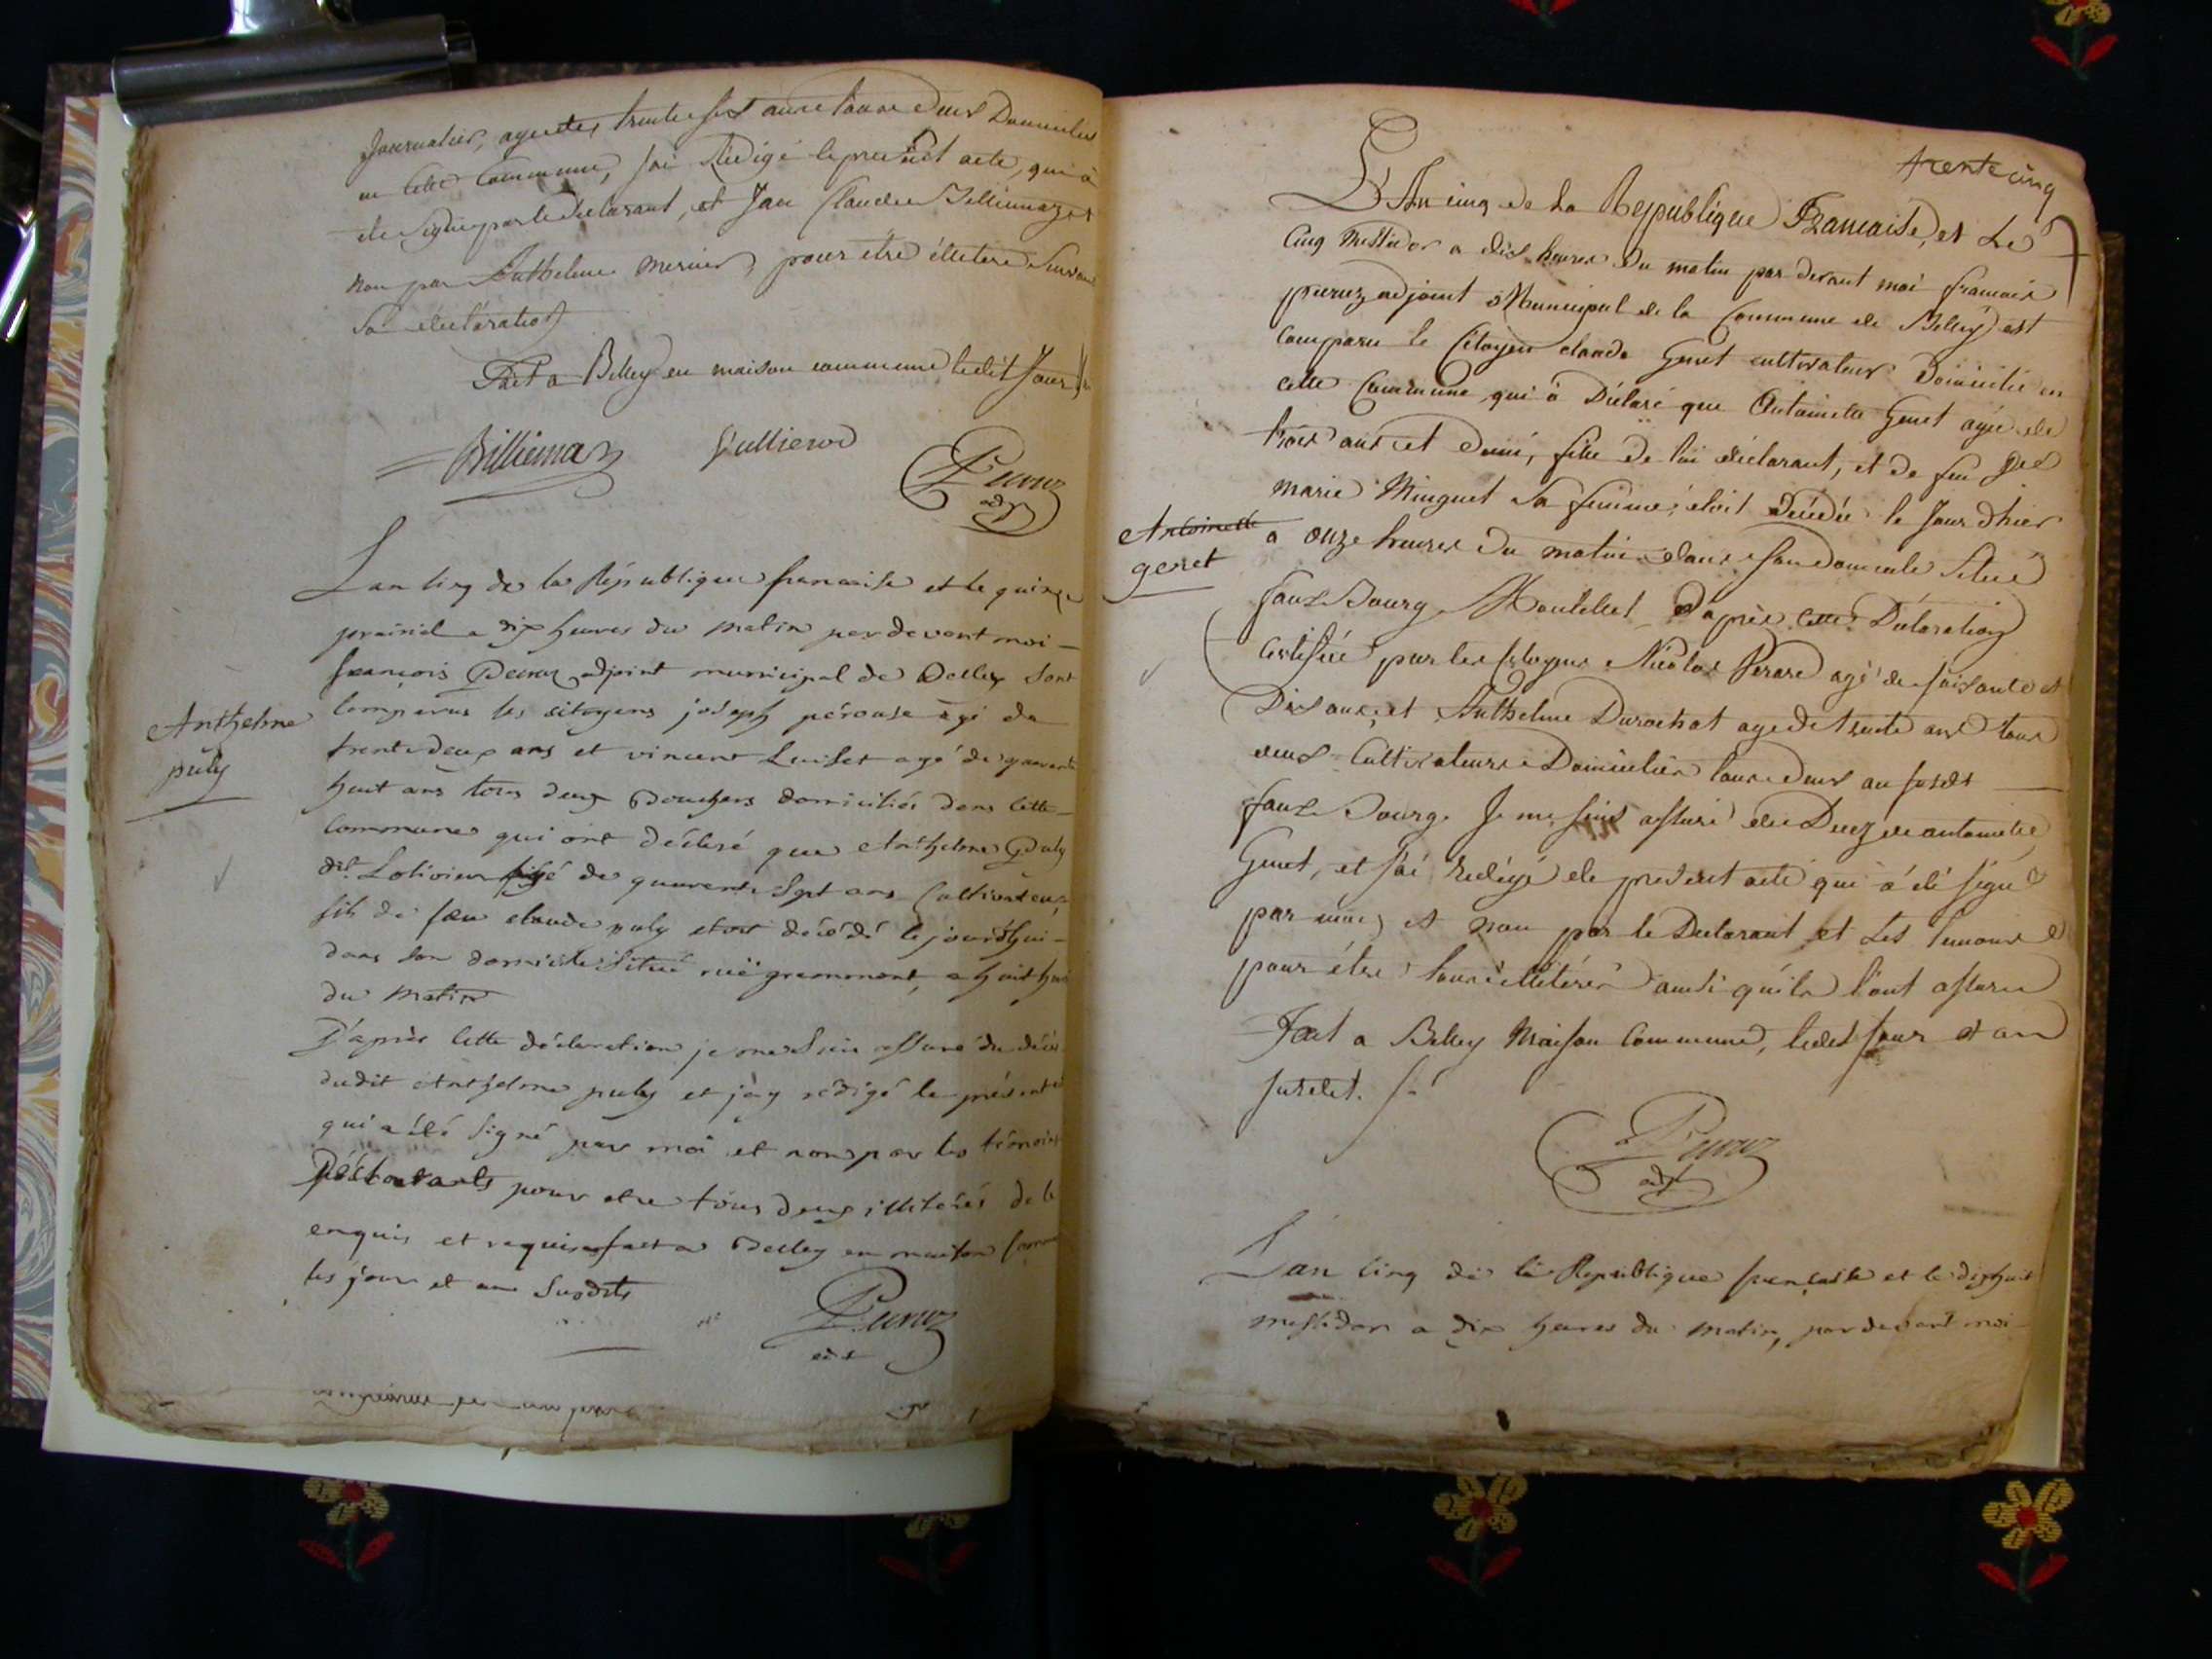 Journalier, agé de trente sept ans tous deux Domicilies
en cette Commune, J'ai Rédigé le present acte, qui à
été Signé par le déclarant, et Jean Claude Billiemaz et
non par Anthelme mernier, pour être illetere Suivant
Sa déclaration
Fait a Belley en maison commune ledit Jour
Billiemaz Peruz
adj
L'an cinq de la République francaise et le quinze
prairial a dix heures du matin par devant moi
françois Peruz adjoint municipal de Belley Sont
Comparus les citoyens joseph pérouse agé de
trente deux ans et vincent Luiset agé de quarante
huit ans tous deux Bouchers domiciliés dans cette
Commune qui ont déclaré que Anthelme Puly
dit Lolivier agé de quarante Sept ans Cultivateur
fils de feu claude puly etoit décédé le jourd'hui
dans son domicile Situé rüe grammont, a huit heures
du matin
D'après cette déclaration je me Suis assuré du décès
dudit Anthelme puly et j'ay rédigé le présent
qui a été Signé par moi et non par les témoins
pour etre tous deux illitérés de ce
enquis et requis fait a Belley en maison Commune
les jour et an Susdits
Peruz
adj
Anthelme
puly
trente cinq
L'An cinq de la République Francaise, et Le
Cinq Messidor a dix heures du matin par devant moi francois
peruz adjoint Municipal de la Commune de Belley est
comparu le Citoyen claude Genet cultivateur Domicilié en
cette Commune, qui à Déclaré que Antoinette Genet agée de
trois ans et demi, fille de lui déclarant, et de feu
marie Minguet Sa femme, étoit Décédée le Jour d'hier
a onze heures du matin dans son domicile Situé
faux Bourg D'après cette Déclaration
Certifiée par les Citoyens Nicolas Perare agé de soixante et
Dix ans, et Anthelme Durochat agé de trente ans tous
deux Cultivateurs Domiciliés tous deux au susdit
faux Bourg. Je me suis assuré du Decez de antoinette
Genet, et j'ai redigé le present acte qui à été signé
par moi, et non par le Declarant et Les temoins
pour étre tous illitérés ainsi qu'ils l'ont assuré
Fait a Belley Maison Commune, ledit Jour et an
susdit.
Peruz
adj
Antoinette
genet
L'an cinq de la République française et le dix huit
messidor a dix heures du matin, par devant moi